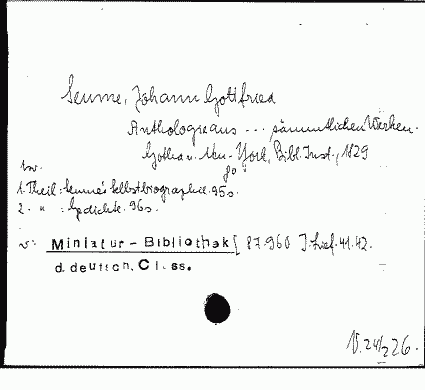 Seume, Johann Gottfried
Anthologie aus ... sämmtlichen Werken.
Gotha u. Neu-York, Bibl. Inst., 1829
8°
1. Theil: Seume's Selbstbiographie. 95 s.
2. " : Gedichte. 96 s.
Miniatur-Bibliothek [ 87.960 Lief. 41.42.
d. deutsch. Cl. ss.
V. 24/2 26.